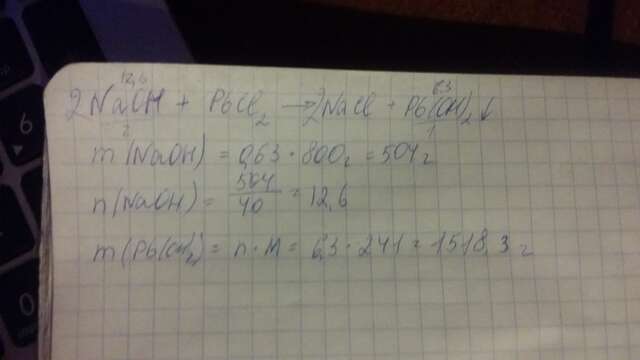 12,6 6,3
2NaOH + PbCl2 → 2NaCl + Pb(OH)2↓
2 1
m(NaOH) = 0,63 · 800г = 504г
n(NaOH) = 504/40 = 12,6
m(Pb(OH)2) = n·M = 6,3 · 241 = 1518,3 г
6
0